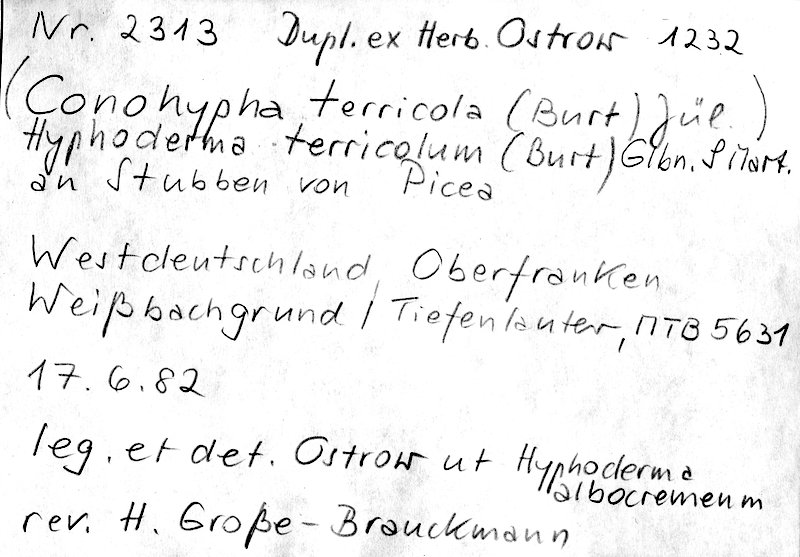 Nr. 2313 Dupl. ex Herb. Ostrow 1232
(Conohypha terricola (Burt) Jül.)
Hyphoderma terricolum (Burt) Glbn. S Mart.
an Stubben von Picea
Westdeutschland, Oberfranken
Weißbachgrund / Tiefenlauter, MTB 5631
17. 6. 82
leg. et det. Ostrow ut Hyphoderma
albocremeum
rev. H. Große-Brauckmann